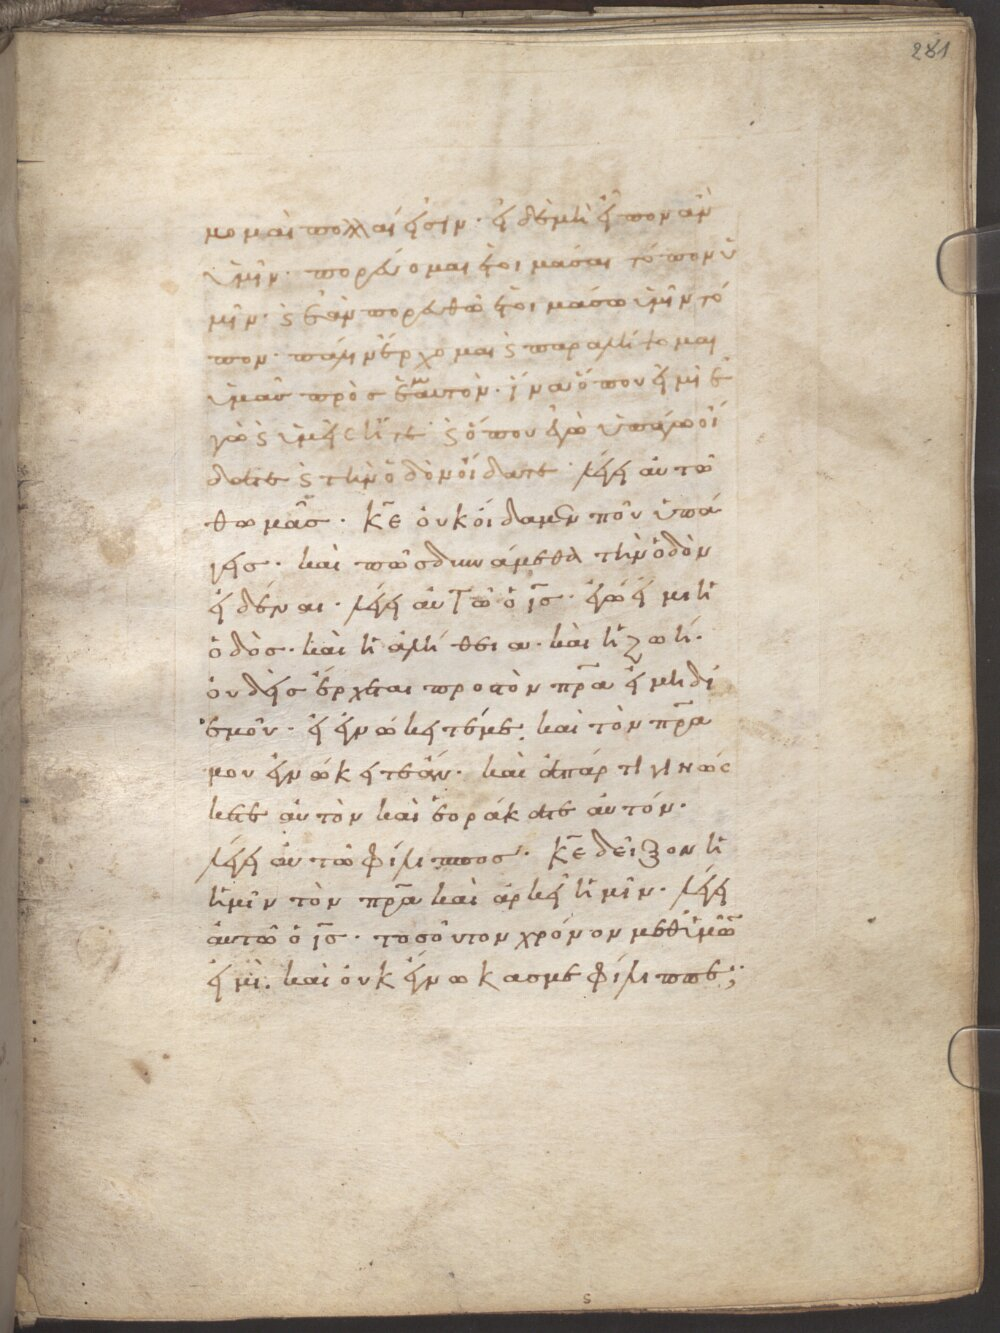 281
μοναὶ πολλαί εἰσιν· εἰ δὲ μὴ εἶπον ἂν
ὑμῖν· πορεύομαι ἑτοιμάσαι τόπον ὑ
μῖν· ϛ ἐὰν πορευθῶ ἑτοιμάσω ὑμῖν τό
πον· πάλιν ἔρχομαι ϛ παραλήψομαι
ὑμᾶς πρὸς ἐμαυτὸν· ἵνα ὅπου εἰμὶ ἐ
γὼ ϛ ὑμεῖς ἦτε· ϛ ὅπου ἐγὼ ὑπάγω οἴ
δατε ϛ τὴν ὁδὸν οἴδατε· λέγει αὐτῶ
θωμᾶς· κε οὐκ οἴδαμεν ποῦ ὑπά
γεις· καὶ πῶς δυνάμεθα τὴν ὁδὸν
εἰδέναι· λέγει αὐτῶ ὁ ις· ἐγώ εἰμι ἡ
ὁδὸς· καὶ ἡ ἀλήθεια· καὶ ἡ ζωή·
οὐδεὶς ἔρχεται προς τὸν πρα εἰ μὴ δι
ἐμοῦ· εἰ ἐγνώκειτέ με· καὶ τὸν πρα
μου ἐγνώκειτε ἄν· καὶ ἀπάρτι γινώς
κετε αὐτὸν καὶ ἑοράκατε αὐτόν·
λέγει αὐτῶ φίλιππος· κε δεῖξον ἡ
ἡμῖν τὸν πρα καὶ ἀρκεῖ ἡμῖν· λέγει
αὐτῶ ὁ ις· τοσοῦτον χρόνον μεθ ὑμῶν
εἰμὶ· καὶ οὐκ ἔγνωκας με φίλιππε;
s